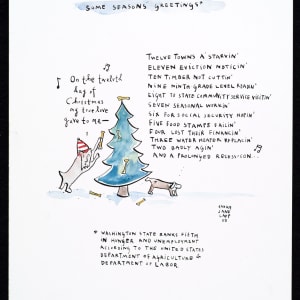 SOME SEASONS' GREETINGS*
On the twelfth
day of
Christmas
my true love
gave to me—
TWELVE TOWNS A' STARVIN'
ELEVEN EVICTION NOTICIN'
TEN TIMBER NOT CUTTIN'
NINE NINTH GRADE LEVEL READIN'
EIGHT TO STATE COMMUNITY SERVICE VISITIN'
SEVEN SEASONAL WORKIN'
SIX FOR SOCIAL SECURITY HOPIN'
FIVE FOOD STAMPS FAILIN'
FOUR LOST THEIR FINANCIN'
THREE WATER HEATER REPLACIN'
TWO BADLY AGIN'
AND A PROLONGED RECESSION...
* WASHINGTON STATE RANKS FIFTH
IN HUNGER AND UNEMPLOYMENT
ACCORDING TO THE UNITED STATES
DEPARTMENT OF AGRICULTURE &
DEPARTMENT OF LABOR.